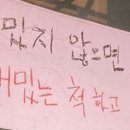 밌지 않으면
재밌는 척 하고